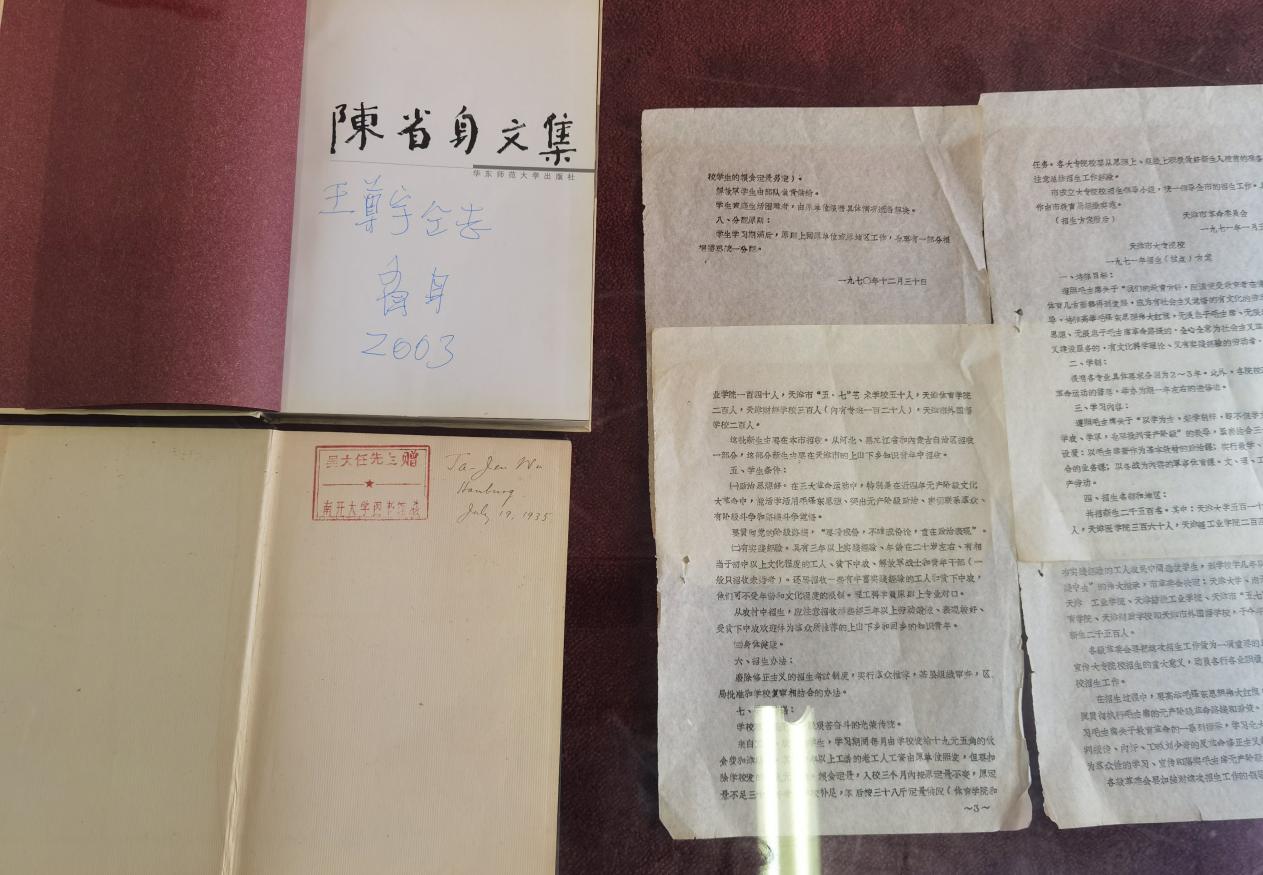 陳省身文集
华东师范大学出版社
王尊宇同志
省身
2003
吴大任先生赠
南开大学图书馆藏
Ta-Jen Wu
Hamburg
July 19, 1935
校学生的粮食定量另定）。
解放军学生由部队负责供给。
学生家庭生活困难者，由原单位根据具体情况适当解决。
八、分配原则：
学生学习期满后，原则上回原单位或原地区工作，也要有一部分根
一九七〇年十二月三十日
业学院一百四十人，天津市“五·七”艺术学校五十人，天津体育学院
二百人，天津财经学校三百人（内有专培一百二十人），天津市外国语
学校二百人。
这些新生主要在本市招收。从河北、黑龙江省和内蒙古自治区招收
一部分，这部分新生主要在天津市的上山下乡知识青年中招收。
五、学生条件：
㈠政治思想好。在三大革命运动中，特别是在近四年无产阶级文化
大革命中，能活学活用毛泽东思想、突出无产阶级政治、密切联系群众、
有阶级斗争和路线斗争觉悟。
要贯彻党的阶级路线，“要看成份，不唯成份论，重在政治表现”。
㈡有实践经验。具有三年以上实践经验、年龄在二十岁左右、有相
当于初中以上文化程度的工人、贫下中农、解放军战士和青年干部（一
般只招收未婚者）。还要招收一些有丰富实践经验的工人和贫下中农，
他们可不受年龄和文化程度的限制。理工科学员原则上专业对口。
从农村中招生，应注意招收那些经三年以上劳动锻炼、表现较好、
受贫下中农欢迎并为群众所推荐的上山下乡和回乡的知识青年。
㈢身体健康。
六、招生办法：
废除修正主义的招生考试制度，实行群众推荐，基层组织审查，区、
局批准和学校复审相结合的办法。
七、
学校 艰苦奋斗的光荣传统。
来自 学生，学习期间每月由学校发给十九元五角的伙
食费和 年以上工龄的老工人工资由原单位照发，但要扣
除学校发 粮食定量，入校三个月内按原定量不变，原定
量不足三十 补足，半年后按三十八斤定量供应（体育学院和
～3～
任务。各大专院校要从思想上、组织上积极做好新生入校前的准备
注意总结招生工作经验。
市成立大专院校招生领导小组，统一领导全市的招生工作。
作由市教育局组织实施。
（招生方案附后）
天津市革命委员会
一九七一年一月三
天津市大专院校
一九七一年招生（试点）方案
一、培养目标：
遵照毛主席关于“我们的教育方针，应该使受教育者在德
体育几方面都得到发展，成为有社会主义觉悟的有文化的劳动
导，培养高举毛泽东思想伟大红旗，无限忠于毛主席、无限忠
思想、无限忠于毛主席革命路线的，全心全意为社会主义革
义建设服务的，有文化科学理论、又有实践经验的劳动者。
二、学制：
根据各专业具体要求分别为2～3年。此外，各院校
革命运动的需要，举办为期一年左右的进修班。
三、学习内容：
遵照毛主席关于“以学为主，兼学别样，即不但学文
学农、学军，也要批判资产阶级”的教导，
设置：以毛主席著作为基本教材的政治课；实行教学、
合的业务课；以备战为内容的军事体育课。文、理、工
产劳动。
四、招生名额和地区：
共招新生二千五百名。其中：天津大学五百一十
人，天津医学院三百六十人，天津轻工业学院二百四
有实践经验的工人农民中间选拔学生，到学校学几年以
天津 工业学院、天津纺织工业学院、天津市“五七”
育学院、天津财经学校和天津市外国语学校，于今年
新生二千五百人。
各级革委会要把这次招生工作做为一项重要的
宣传大专院校招生的重大意义，动员各行各业积极
校招生工作。
在招生过程中，要高举毛泽东思想伟大红旗，